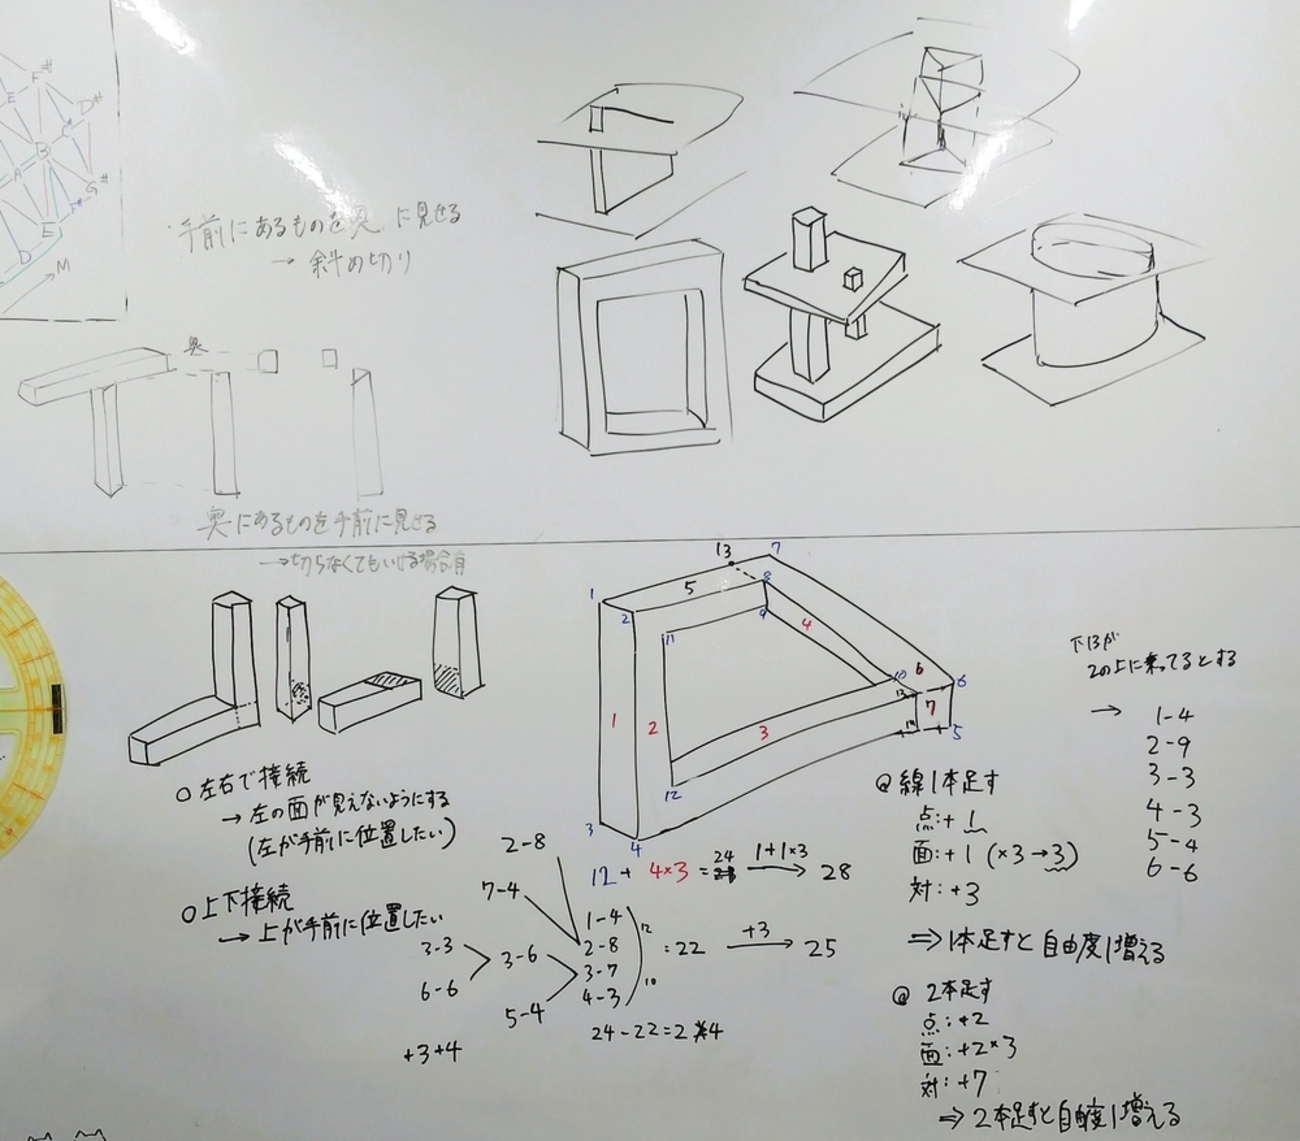 F#
E
D#
C#
B
A
G#
E
D
M
手前にあるものを奥に見せる
→ 斜め切り
奥
奥にあるものを手前に見せる
→切らなくてもいける場合有
○左右で接続
→ 左の面が見えないようにする
(左が手前に位置したい)
○上下接続
→ 上が手前に位置したい
13
7
1
5
8
2
9
11
4
10
6
6
13
1
2
3
7
5
12
3
4
下13が
2の上に乗ってるとする
→ 1-4
2-9
3-3
4-3
5-4
6-6
@ 線1本足す
点:+1
面:+1 (×3→3)
対:+3
⇒1本足すと自由度1増える
@ 2本足す
点:+2
面:+2×3
対:+7
⇒2本足すと自由度1増える
12 + 4×3 = 24 1+1×3 → 28
2-8
7-4
3-3
6-6
3-6
5-4
1-4
2-8
3-7
4-3
12
10
=22 +3 → 25
24-22=2
+3+4